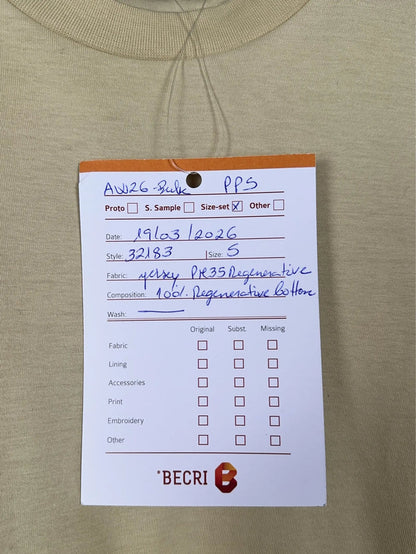 AW26-Bulk PPS
Proto S. Sample Size-set X Other
Date: 19/03/2026
Style: 32183 Size: S
Fabric: Jersey PR35 Regenerative
Composition: 100% Regenerative Cotton
Wash: —
Original Subst. Missing
Fabric
Lining
Accessories
Print
Embroidery
Other
BECRI